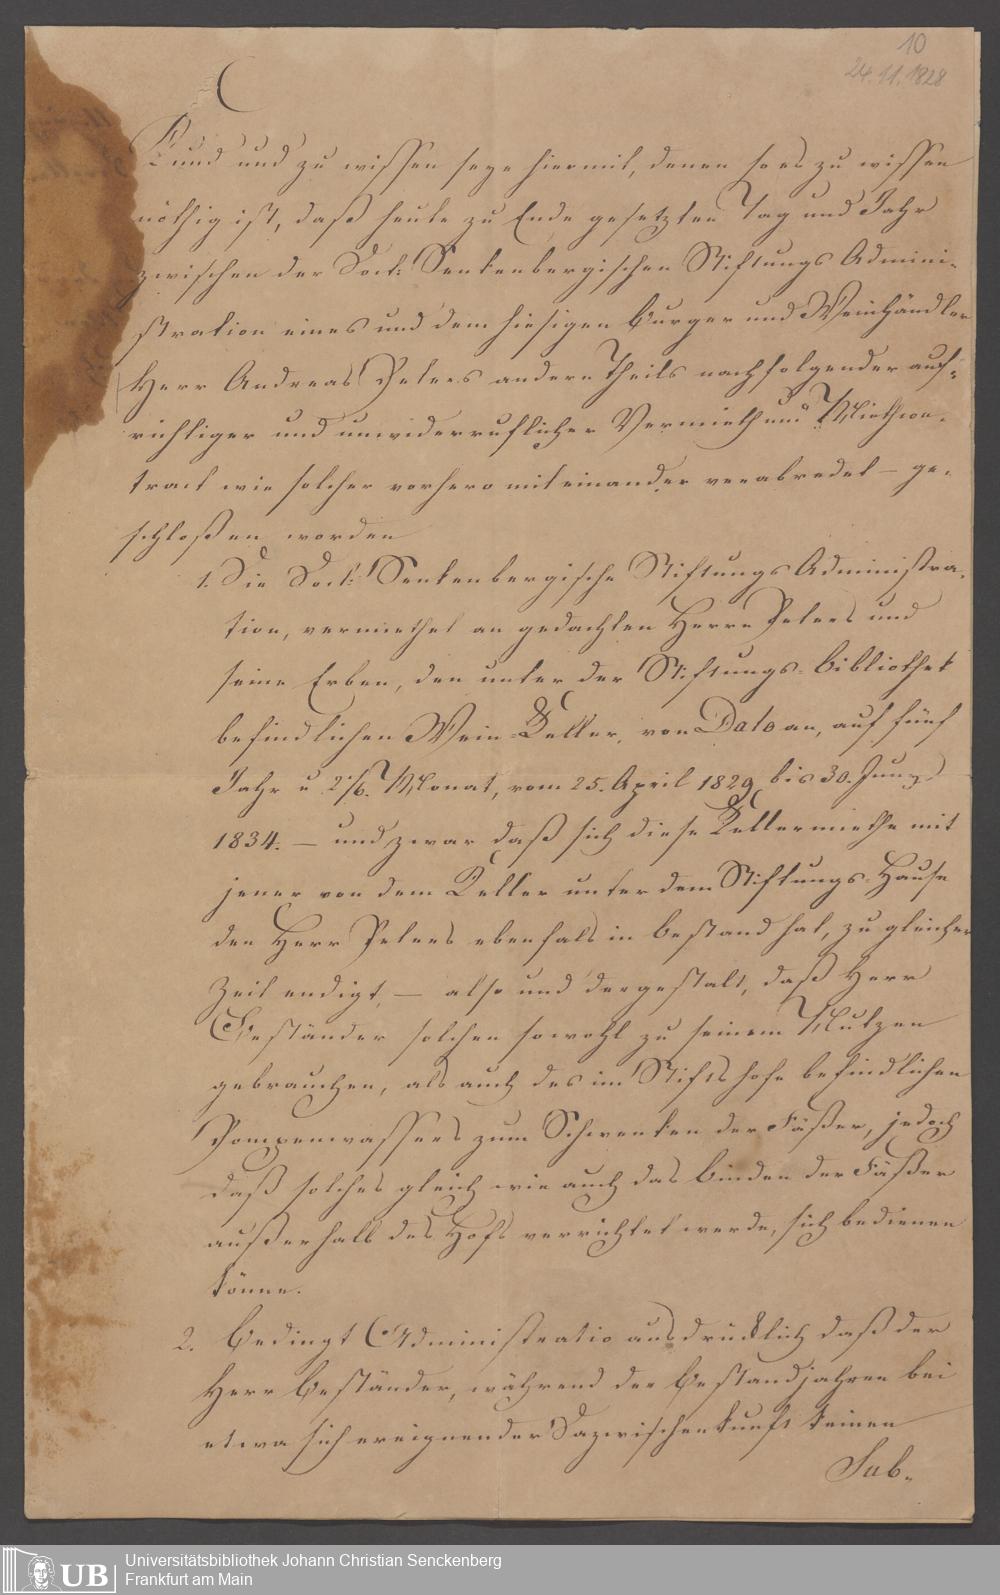 10
24.11.1828
Kund und zu wissen seye hiermit, denen so es zu wissen
nöthig ist, daß heute zu Ende gesetzten Tag und Jahr
zwischen der Doct: Senkenbergischen Stiftungs Admini-
stration eines und dem hiesigen Burger und Weinhändler
Herr Andreas Peters andern Theils nachfolgender auf-
richtiger und unwiderruflicher Vermieth und Miethcon-
tract wie solcher vorhero miteinander verabredet – ge-
schloßen worden
1. Die Doct: Senkenbergische Stiftungs Administra-
tion, vermiethet an gedachten Herrn Peters und
seine Erben, den unter der Stiftungs-Bibliothek
befindlichen Wein-Keller, von Dato an, auf fünf
Jahr u 2 1/6. Monat, vom 25. April 1829 bis 30. Juny
1834. – und zwar daß sich diese Kellermiethe mit
jener von dem Keller unter dem Stiftungs-Hause
den Herr Peters ebenfals in Bestand hat, zu gleicher
Zeit endigt, – also und dergestalt, daß Herr
Beständer solchen sowohl zu seinem Nutzen
gebrauchen, als auch des im Stiftshofe befindlichen
Pompenwassers zum Schwenken der Fäßer, jedoch
daß solches gleich wie auch das Binden der Fäßer
außerhalb des Hofs verrichtet werde, sich bedienen
könne.
2. Bedingt Administratio ausdrücklich daß der
Herr Beständer, während der Bestandjahren bei
etwa sich ereignender Dazwischenkunft keinen
Sub-
Universitätsbibliothek Johann Christian Senckenberg
Frankfurt am Main
UB